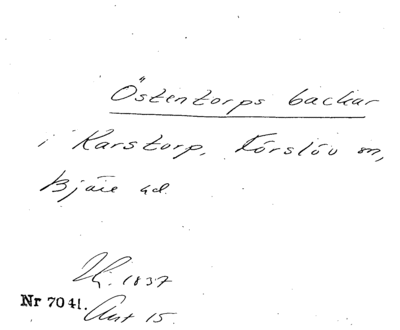 Östentorps backar
i Karstorp, Förslöv sn,
Bjäre hd
1837
Nr 7041.
Akt 15.